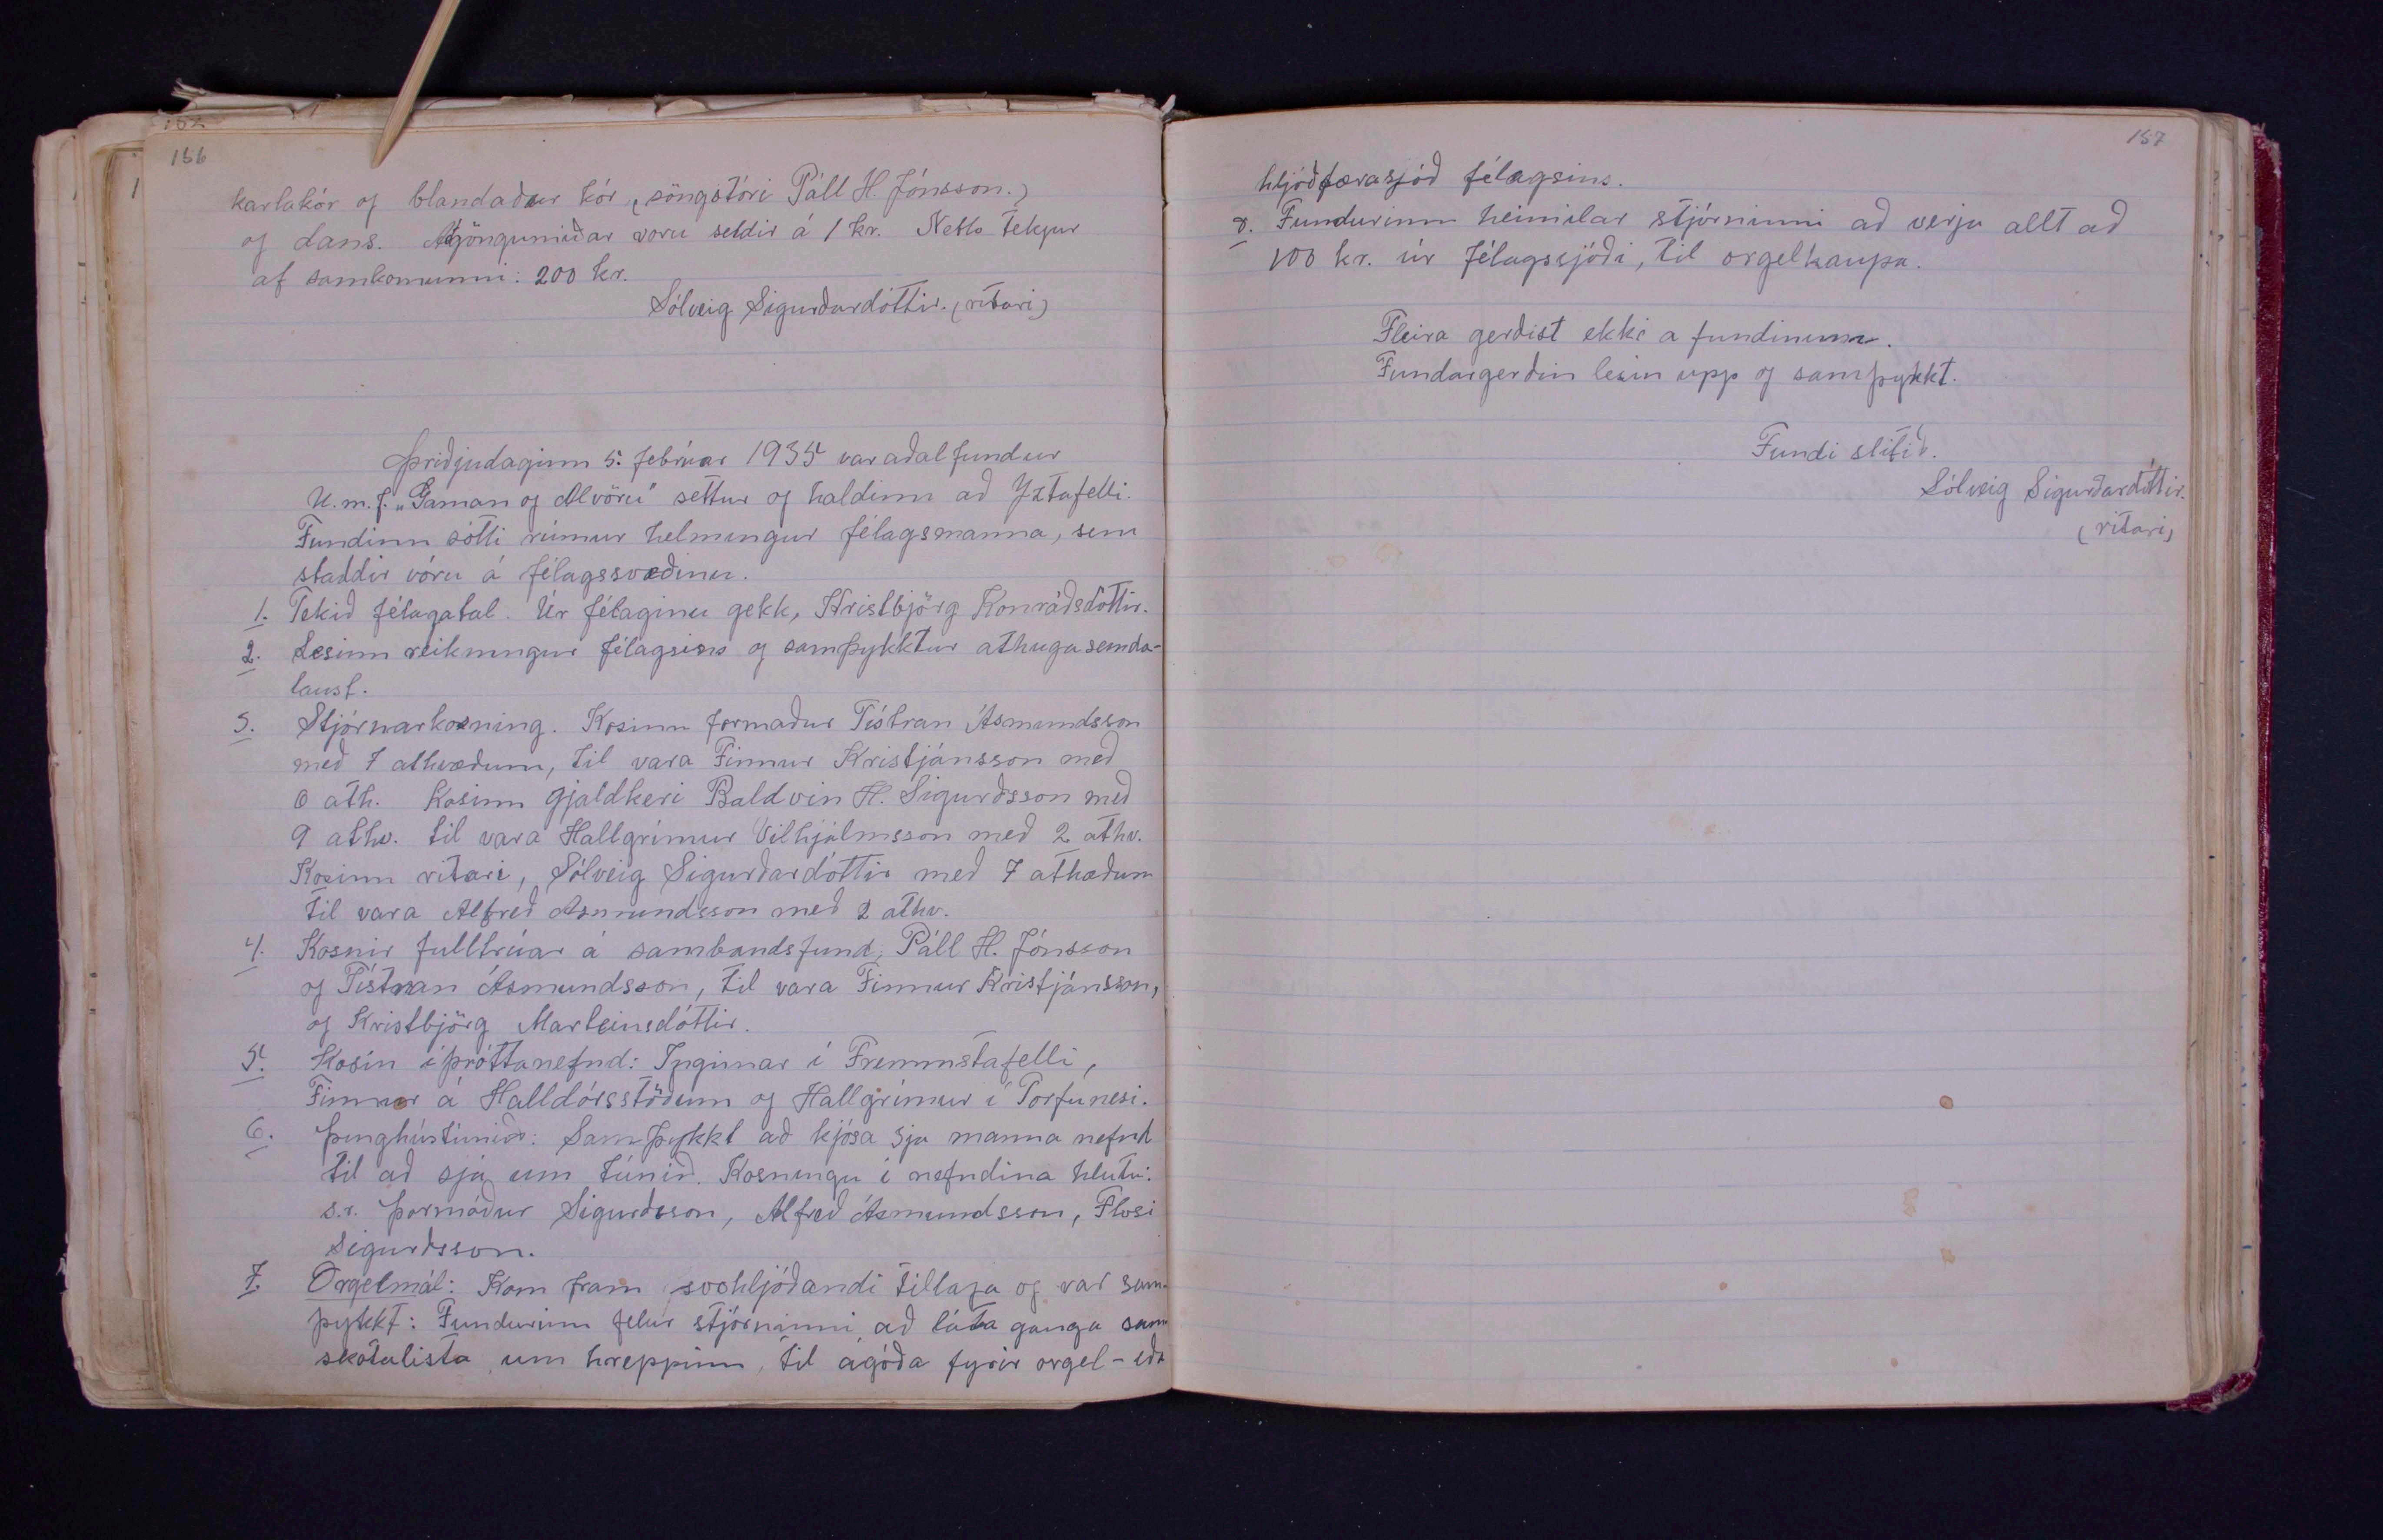 152
156
karlakór og blandaður kór, (söngstóri Páll H. Jónsson.)
og dans. Aðgöngumiðar voru seldir á 1 kr. Netto tekjur
af samkomunni: 200 kr.
Sólveig Sigurðardóttir. (ritari)
Þriðjudaginn 5. febrúar 1935 var aðalfundur
U.m.f. „Gaman og Alvöru" settur og haldinn að Yztafelli.
Fundinn sótti rúmur helmingur félagsmanna, sem
staddir vóru á félagssvæðinu.
1. Tekið félagatal. Úr félaginu gekk, Kristbjörg Konráðsdóttir.
2. Lesinn reikningur félagsins og samþykktur athugasemda-
laust.
3. Stjórnarkosning. Kosinn formaður Tístran Ásmundsson
með 7 atkvæðum, til vara Finnur Kristjánsson með
6 atk. Kosinn gjaldkeri Baldvin H. Sigurðsson með
9 atkv. til vara Hallgrímur Vilhjálmsson með 2 atkv.
Kosinn ritari, Sólveig Sigurðardóttir með 7 atkæðum
til vara Alfreð Asmundsson með 2 atkv.
4. Kosnir fulltrúar á sambandsfund, Páll H. Jónsson
og Tístran Ásmundsson, til vara Finnur Kristjánsson,
og Kristbjörg Marteinsdóttir.
5. Kosin íþróttanefnd: Ingimar í Fremmstafelli,
Finnur á Halldórsstöðum og Hallgrímur í Torfunesi.
6. Þinghústúnið: Samþykkt að kjósa 3ja manna nefnd
til að sjá um túnið. Kosningu í nefndina hlutu:
s.r. Þormóður Sigurðsson, Alfreð Ásmundsson, Flosi
Sigurðsson.
7. Orgelmál: Kom fram svohljóðandi tillaga og var sam-
þykkt: Fundurinn felur stjórninni að láta ganga sam
skotalista um hreppinn, til ágóða fyrir orgel- eða
157
hljóðfærasjóð félagsins.
8. Fundurinn heimilar stjórninni að verja allt að
100 kr. úr félagssjóði, til orgelkaupa.
Fleira gerðist ekki a fundinum.
Fundargerðin lesin upp og samþykkt.
Fundi slitið.
Sólveig Sigurðardóttir.
(ritari)